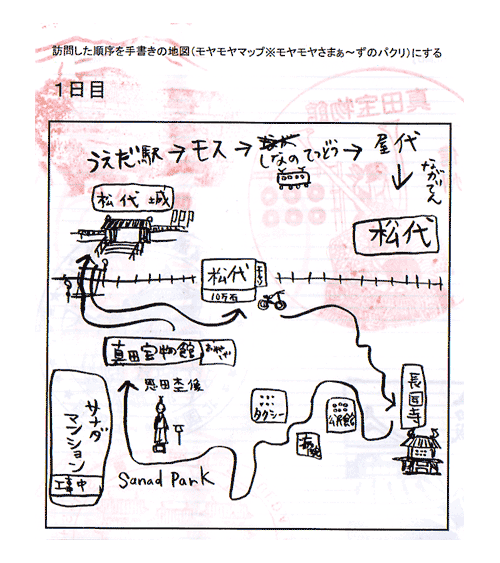 訪問した順序を手書きの地図（モヤモヤマップ※モヤモヤさまぁ～ずのパクリ）にする
1日目
真田宝物館
うえだ駅→モス→しなのてつどう→屋代
ながでん
松代
松代城
松代
10万石
真田宝物館
恩田杢
長国寺
タクシー
公民館
サナダ
マンション
工事中
Sanad Park